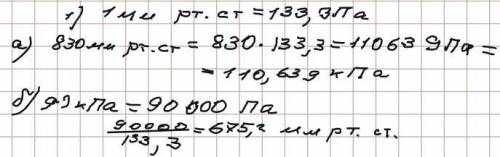 1) 1 мм рт. ст = 133,3 Па
а) 830 мм рт. ст = 830 · 133,3 = 110639 Па =
= 110,639 кПа
б) 90 кПа = 90 000 Па
90000/133,3 = 675,2 мм рт. ст.